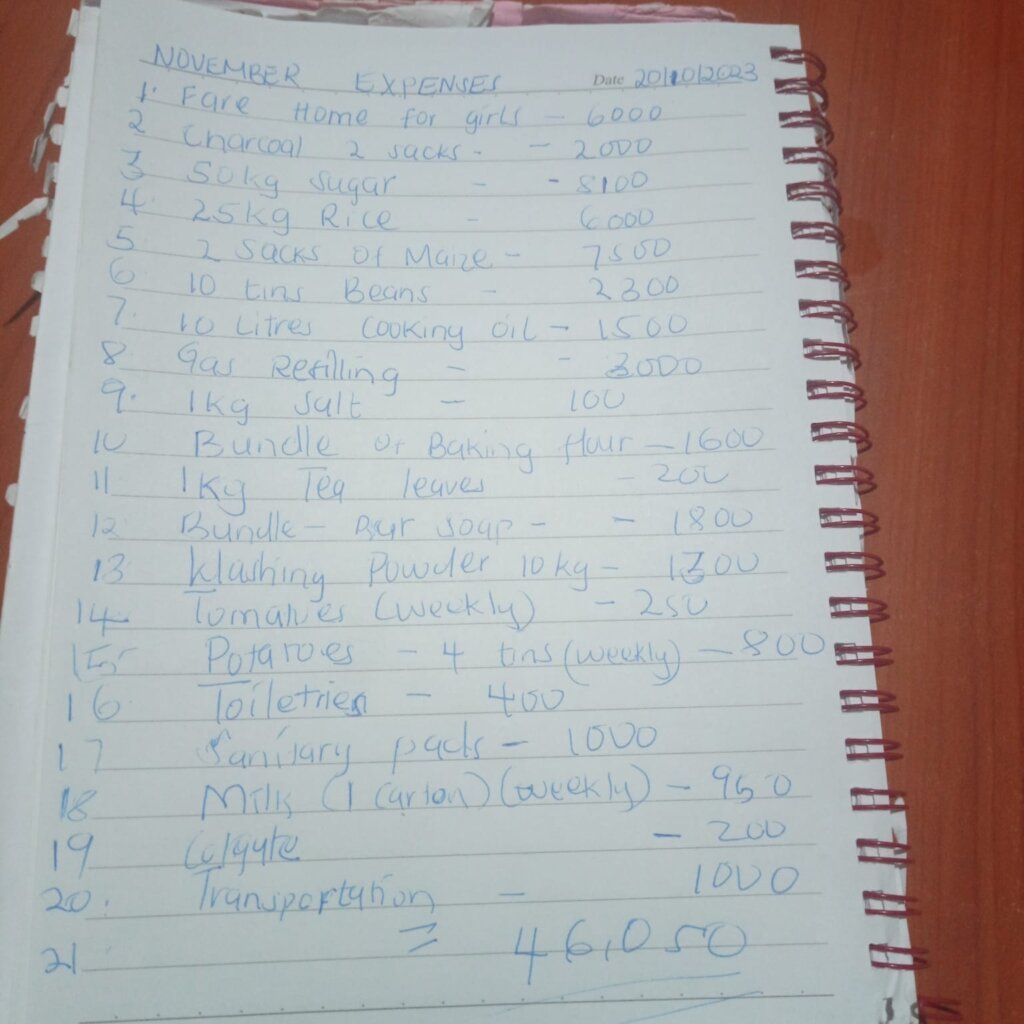 NOVEMBER EXPENSES Date 20/10/2023
1. Fare Home for girls - 6000
2 Charcoal 2 sacks - - 2000
3 50kg sugar - - 8100
4. 25kg Rice - 6000
5. 2 Sacks Of Maize - 7500
6 10 tins Beans - 2300
7. 10 Litres cooking oil - 1500
8 Gas Refilling - - 3000
9. 1kg salt - 100
10 Bundle of Baking flour - 1600
11 1Kg Tea leaves - 200
12 Bundle - Bar soap - - 1800
13 Washing Powder 10kg - 1300
14 Tomatoes (weekly) - 250
15 Potatoes - 4 tins (weekly) - 800
16 Toiletries - 400
17 Sanitary pads - 1000
18 Milk (1 Carton) (weekly) - 950
19 Colgate - 200
20. Transportation - 1000
21 = 46,050